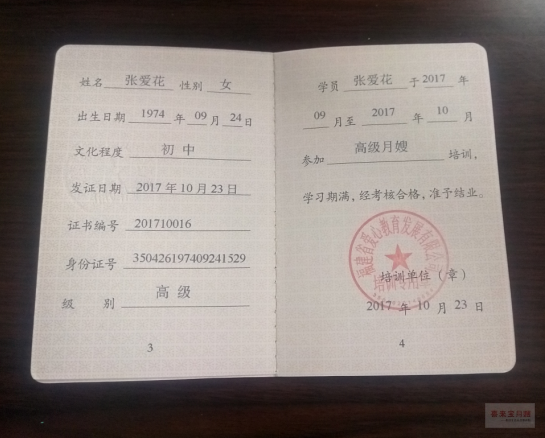 姓名 张爱花 性别 女
出生日期 1974 年 09 月 24 日
文化程度 初中
发证日期 2017年10月23日
证书编号 201710016
身份证号 350426197409241529
级 别 高级
3
学员 张爱花 于 2017 年
09 月至 2017 年 10 月
参加 高级月嫂 培训,
学习期满,经考核合格,准予结业。
福建省爱心教育发展有限公司
培训专用章
培训单位(章)
2017年10月23日
4